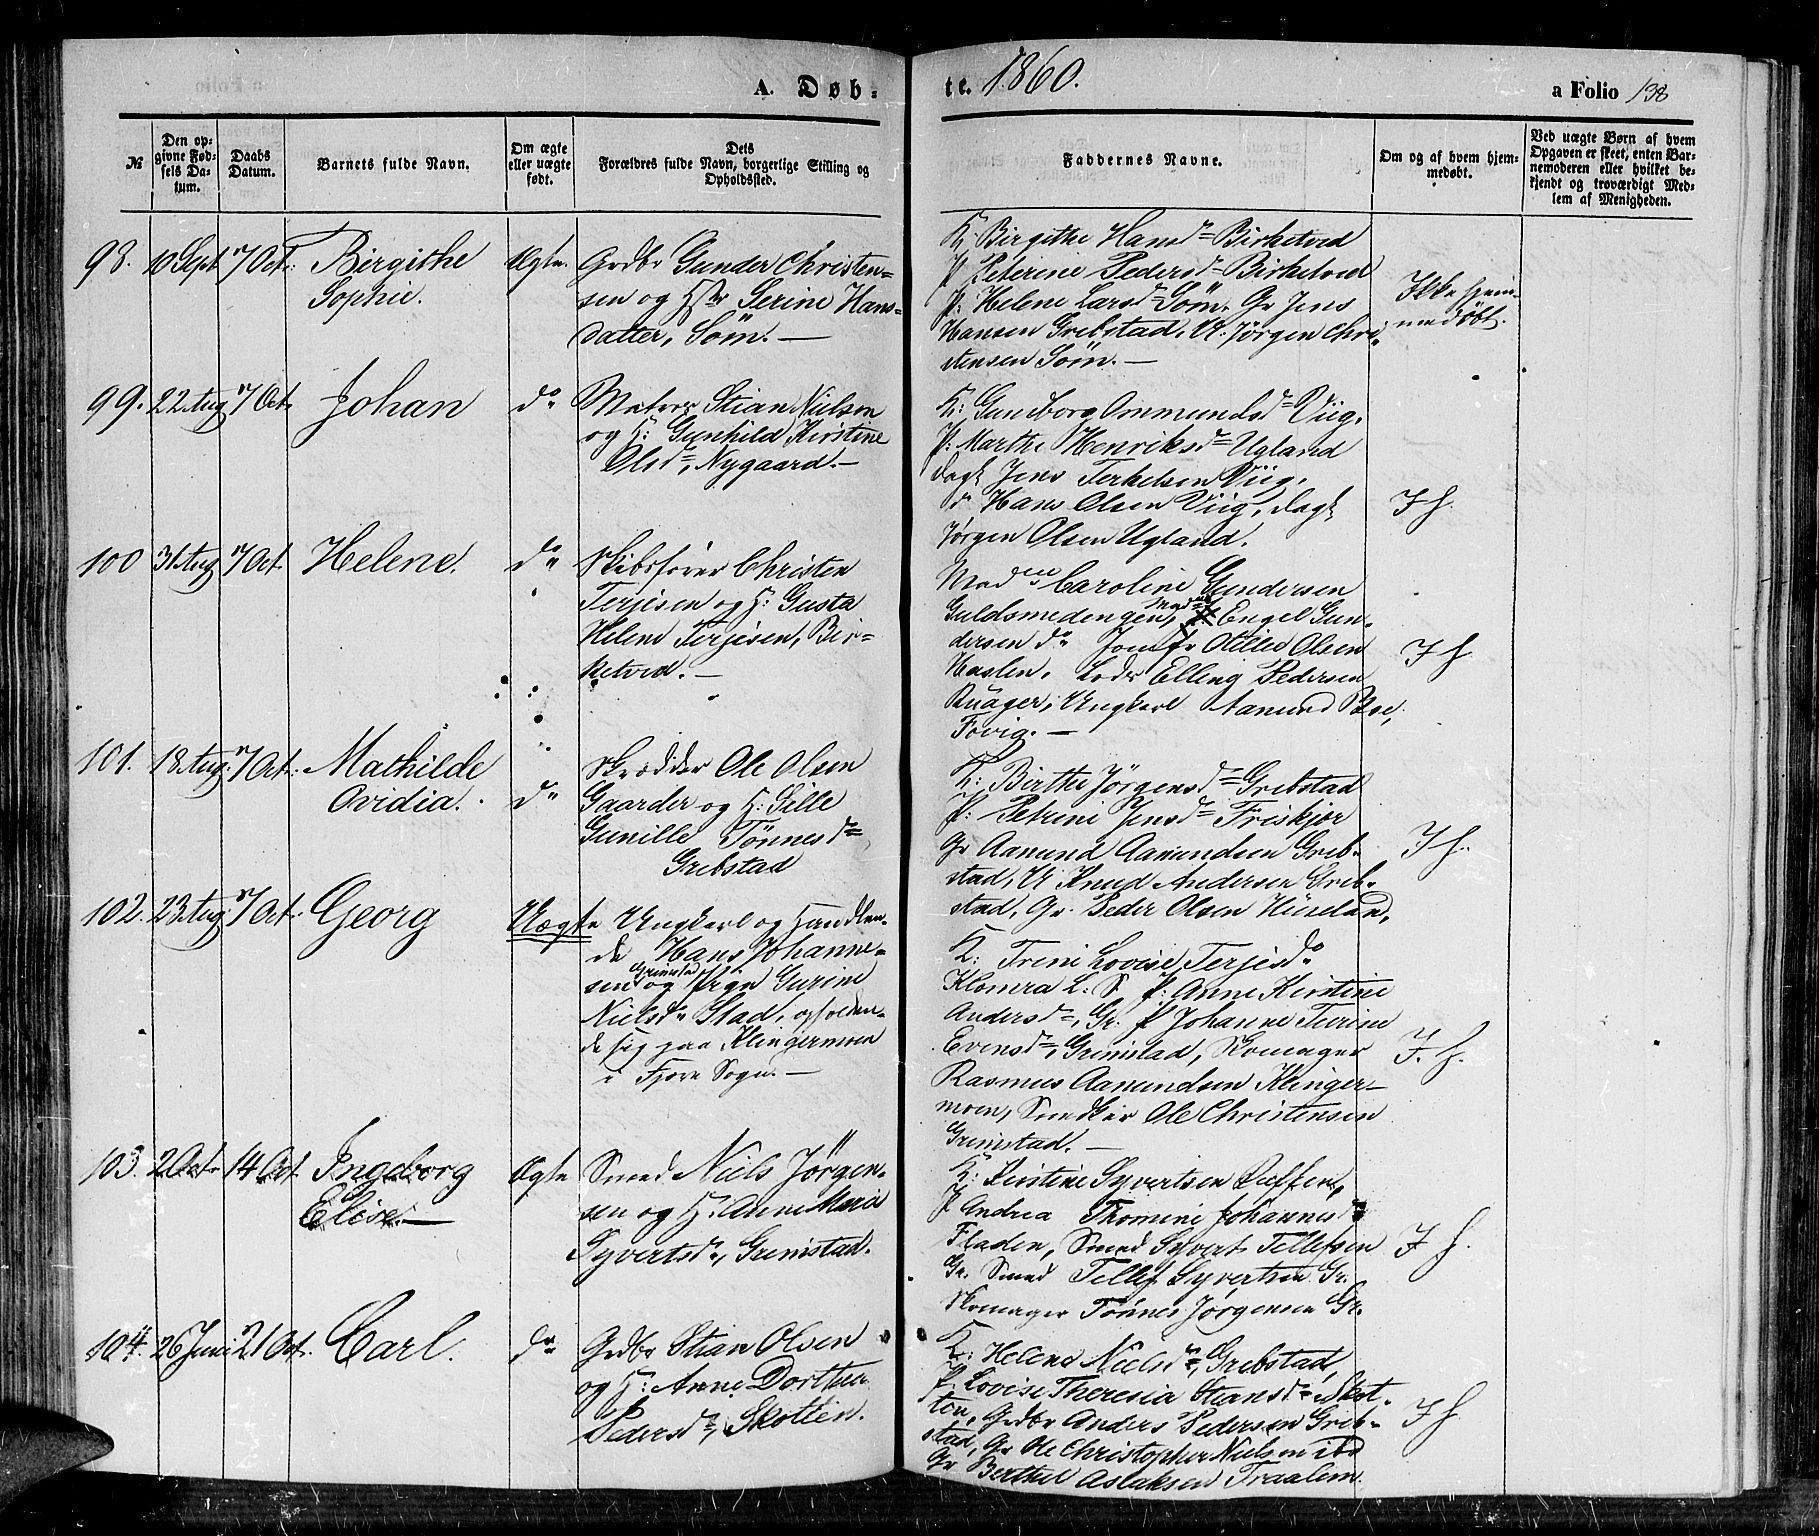 A. Døb-
te. 1860.
a Folio 138
№
Den op-
givne Fød-
sels Da-
tum.
Daabs
Datum.
Barnets fulde Navn.
Om ægte
eller uægte
født.
Dets
Forældres fulde Navn, borgerlige Stilling og
Opholdssted.
Faddernes Navne.
Om og af hvem hjem-
medøbt.
Ved uægte Børn af hvem
Opgaven er skeet, enten Bar-
nemoderen eller hvilket be-
kjendt og troværdigt Med-
lem af Menigheden.
98. 10 Sept 7 Oct: Birgithe
Sophie.
Ægte.
Grdbr Gunder Christen-
sen og Hstr Serine Hans-
datter, Söm. —
K. Birgithe Hansdr Birketved
P. Peterine Pedersdr Birketved
P: Helene Larsdr Söm. Gr Jens
Hansen Grebstad. U. Jørgen Chri-
stensen Söm. —
Ikke hjem-
medøbt.
99. 22 Aug 7 Oct. Johan
do
Matros Stian Nielsen
og H: Gunhild Kirstine
Olsdr, Nygaard. —
K: Gunborg Ommundsdr Viig.
P: Marthe Henriksdr Ugland
Jens Terkelsen Viig.
Hans Olsen Viig,
Jørgen Olsen Ugland.
I H.
100 31 Aug 7 Oct. Helene.
do
Skibsfører Christen
Terjesen og H: Gusta
Helene Terjesen, Bir-
ketved. —
Madme Caroline Gundersen
Guldsmedengen, Madme Engel Gun-
dersen do Jomfr Otilie Olsen
Haslen. Lods Elling Pedersen
Ruager, Ungkarl Aamund Boe,
Fövig. —
I H.
101. 18 Aug. 7 Oct: Mathilde
Ovidia.
do
Skrædder Ole Olsen
Gaarder og H: Sille
Gunille Tönnesdr
Grebstad
K: Birthe Jörgensdr Grebstad
P: Petrine Jensdr Friskjør
Gr Aanund Aanundsen Greb-
stad, U Knud Andersen Greb-
stad, Gr. Peder Olsen Huseland.
I H.
102. 23 Aug 7 Oct: Georg
Uægte
Ungkarl og Handlen-
de Hans Johanne-
sen Grimstad og Pige Gurine
Nielsdr Stad, opholden-
de sig paa Klingermoen
i Fjere Sogn. —
K: Trine Lovise Terjesdr
Klomra L. S P: Anne Kirstine
Andersdr, Gr. P Johanne Turine
Evensdr, Grimstad, Skomager
Rasmus Aanundsen Klinger-
moen, Snedker Ole Christensen
Grimstad. —
I. H.
103. 2 Oct. 14 Oct. Ingeborg
Elise. —
Ægte
Smed Niels Jörgen-
sen og H: Anne Maria
Syvertsdr, Grimstad.
K: Kirstine Syvertsen
P Andrea Thomine Johannesdr
Fladen, Smed Syvert Tellefsen
Gr. Smed Tellef Syvertsen Gr.
Skomager Tönnes Jörgensen Gr.
I H.
104. 26 Juni 21 Oct. Carl.
do
Grdbr Stian Olsen
og H: Anne Dorthea
Pedersdr, Skotten.
K: Helene Nielsdr, Grebstad,
P: Lovise Theresia Stiansdr Skot-
ten, Grdbr Anders Pedersen Greb-
stad, Gr Ole Christopher Nielsen ibd
Gr Berthel Aslaksen Traalem
I H.